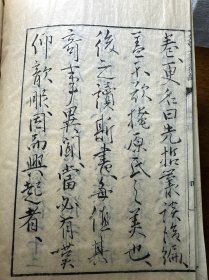 卷更名曰先哲叢談後編
蓋不欲掩原氏之美也
後之讀斯書每值其
奇事異聞當必有嘆
仰歆服因而興起者